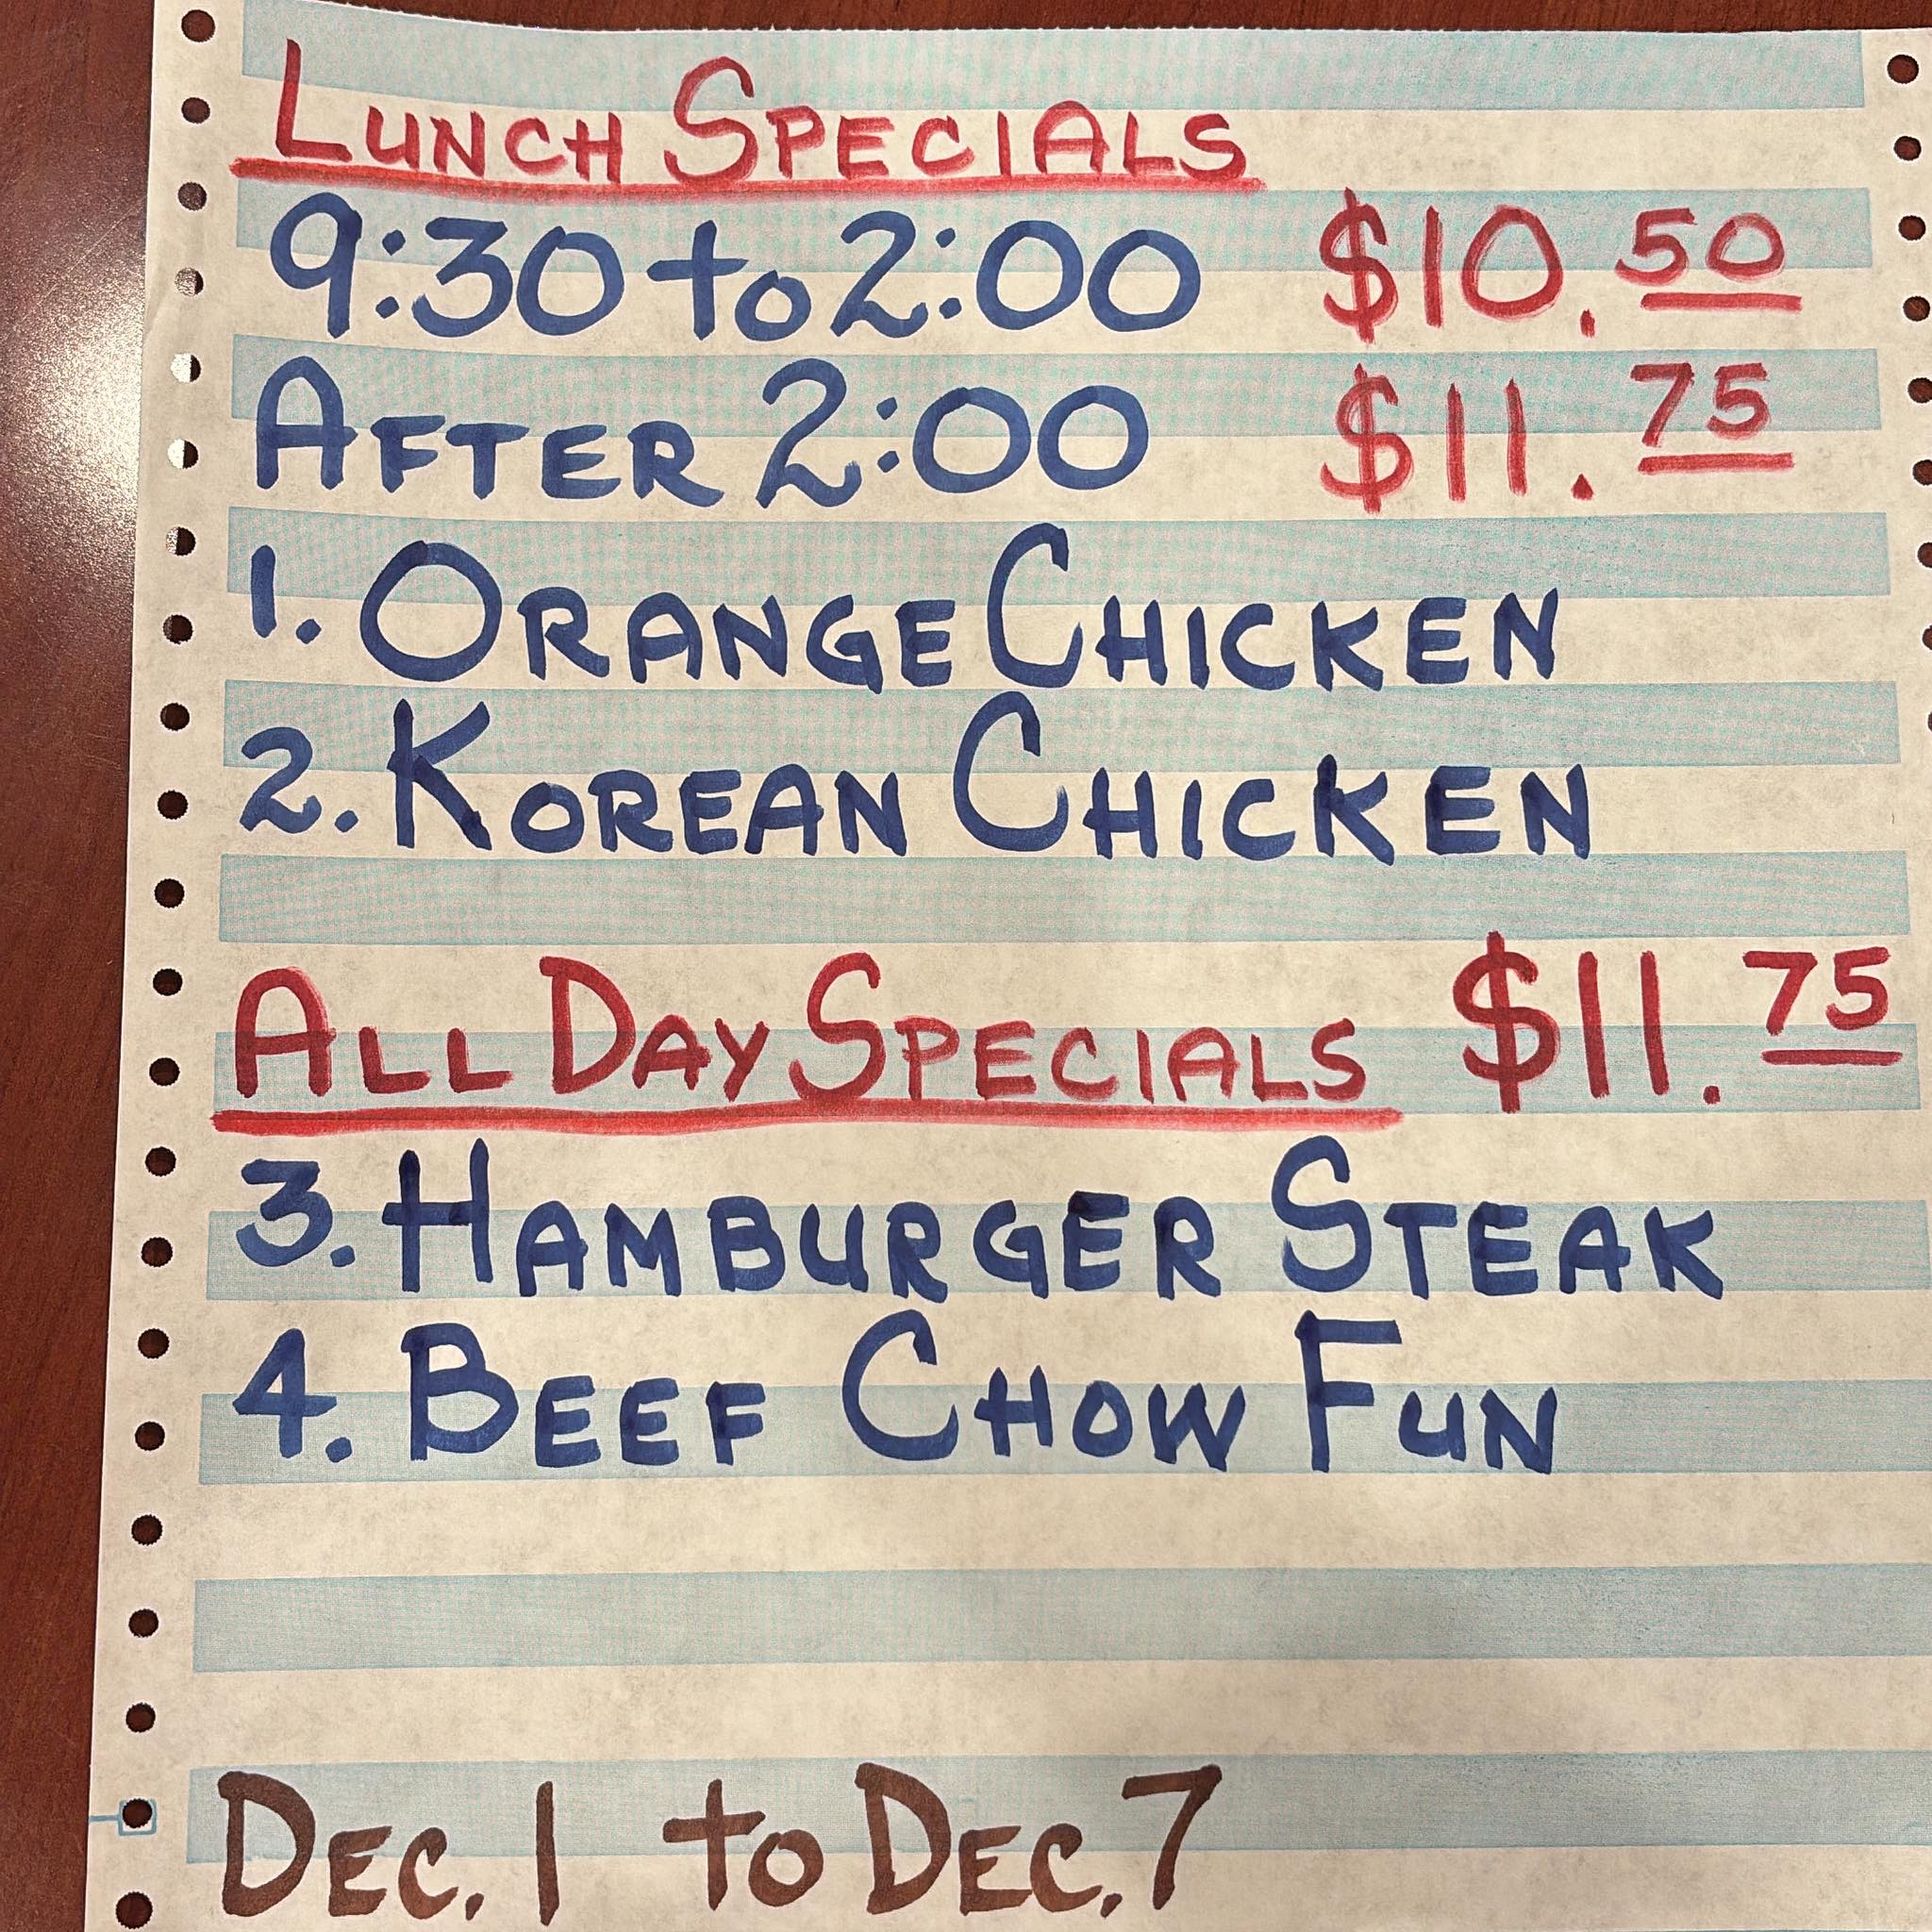 Lunch Specials
9:30 to 2:00 $10.50
After 2:00 $11.75
1. Orange Chicken
2. Korean Chicken
All Day Specials $11.75
3. Hamburger Steak
4. Beef Chow Fun
Dec. 1 to Dec. 7